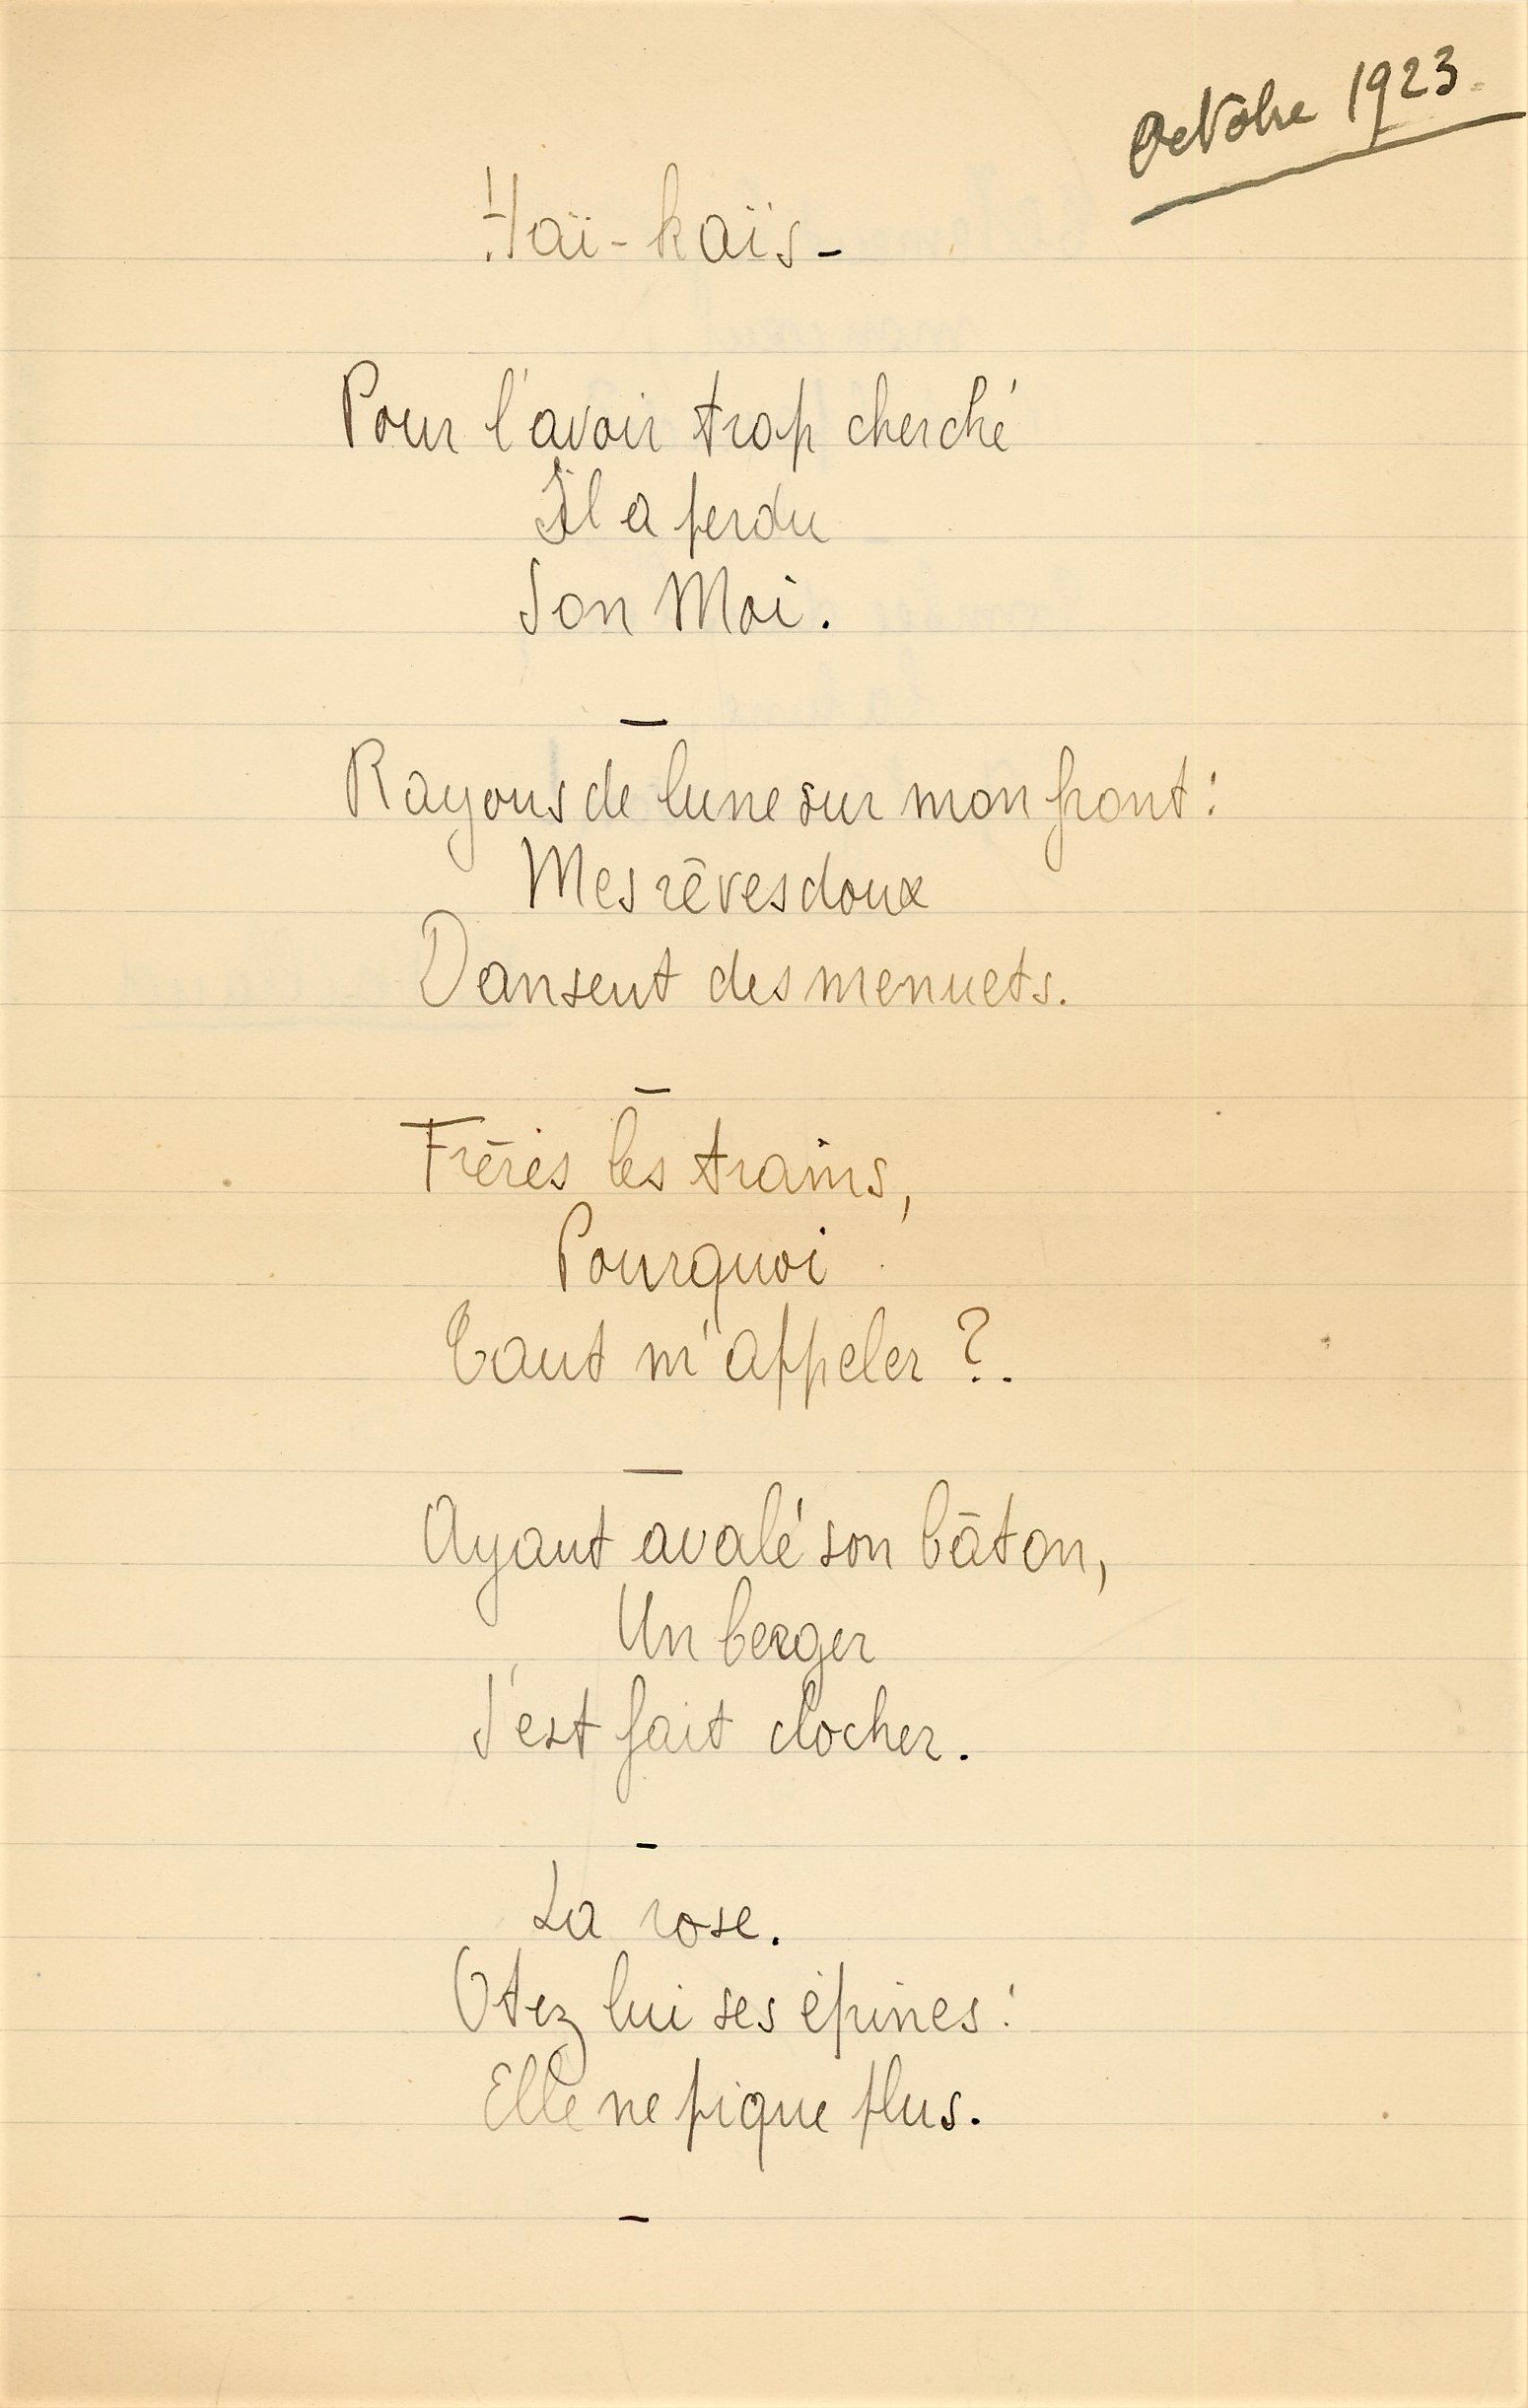 Octobre 1923.
Haï-kaïs-
Pour l'avoir trop cherché
Il a perdu
Son Moi.
—
Rayons de lune sur mon front:
Mes rêves doux
Dansent des menuets.
—
Frères les trains,
Pourquoi
Tant m'appeler ?.
—
Ayant avalé son bâton,
Un berger
S'est fait clocher.
-
La rose.
Otez lui ses épines:
Elle ne pique plus.
-